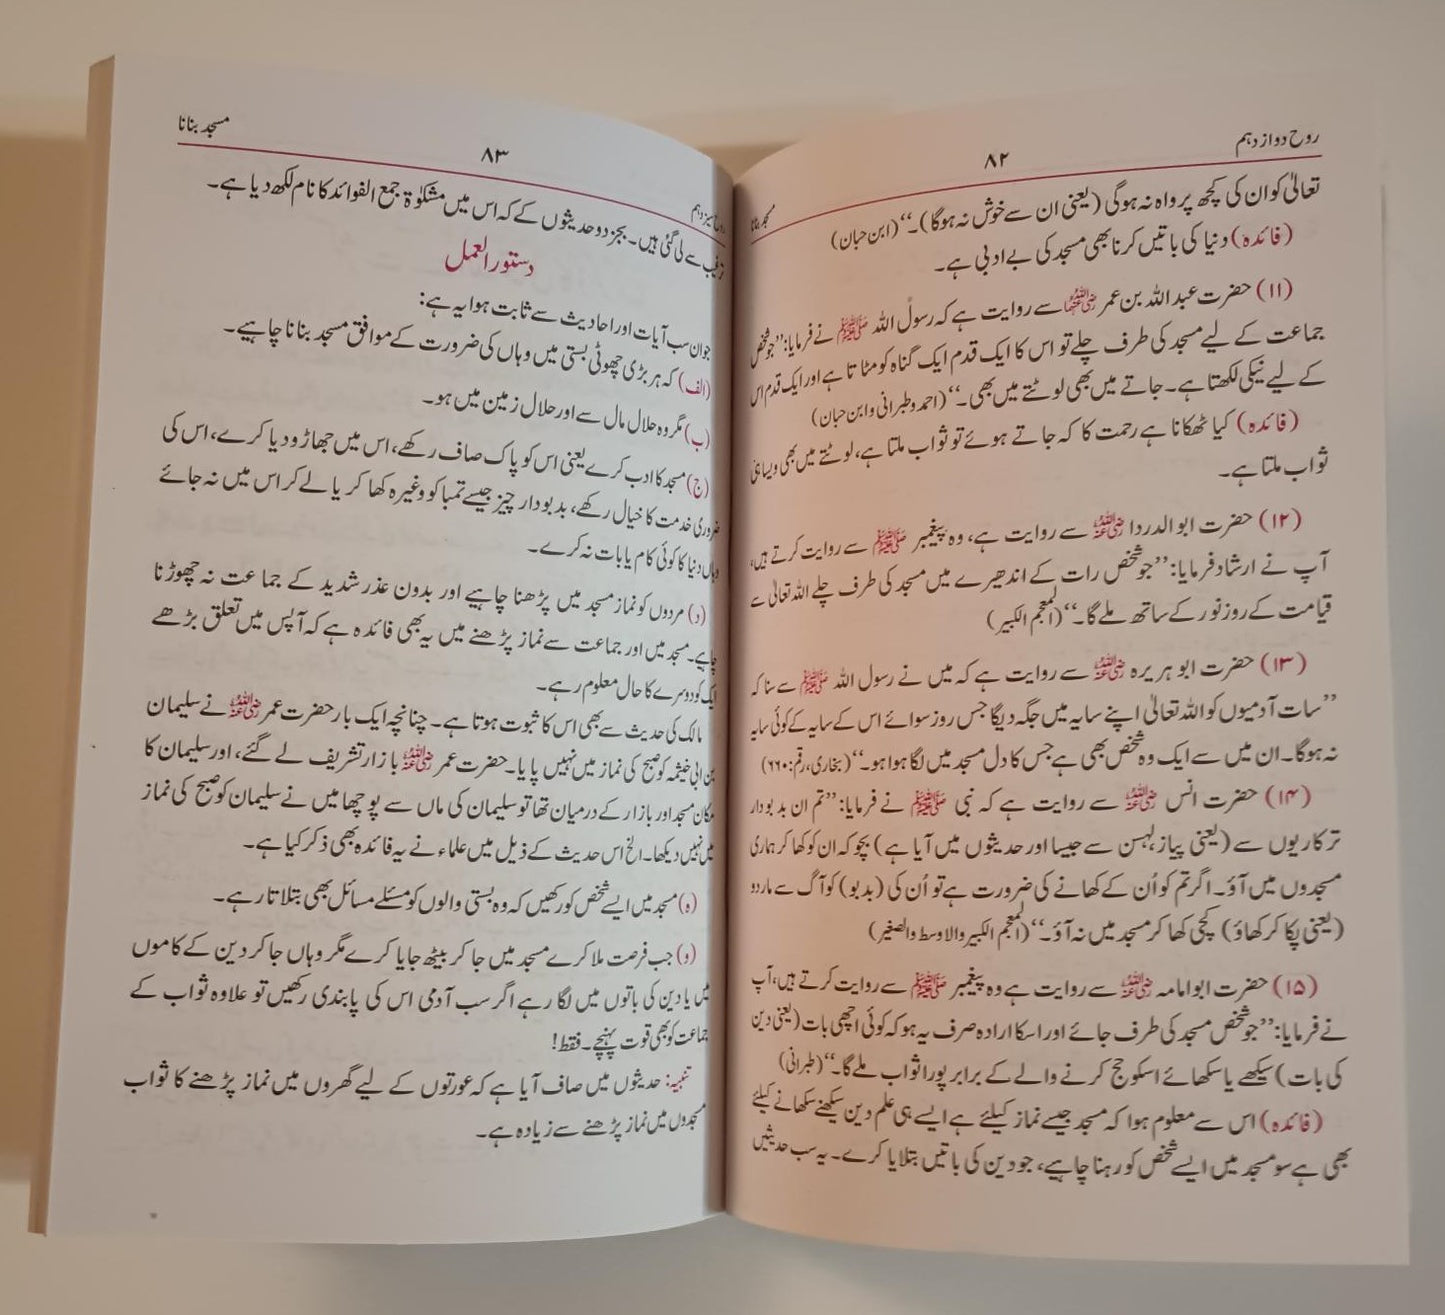 روح دوازدہم
۸۲
مسجد بنانا
تعالیٰ کو ان کی کچھ پرواہ نہ ہوگی (یعنی ان سے خوش نہ ہوگا)۔‘‘ (ابن حبان)
(فائدہ) دنیا کی باتیں کرنا بھی مسجد کی بے ادبی ہے۔
(۱۱) حضرت عبداللہ بن عمر رضی اللہ عنہما سے روایت ہے کہ رسول اللہ ﷺ نے فرمایا: ’’جو شخص
جماعت کے لیے مسجد کی طرف چلے تو اس کا ایک قدم ایک گناہ کو مٹاتا ہے اور ایک قدم اس
کے لیے نیکی لکھتا ہے۔ جاتے میں بھی لوٹتے میں بھی۔‘‘ (احمد و طبرانی و ابن حبان)
(فائدہ) کیا ٹھکانا ہے رحمت کا کہ جاتے ہوئے تو ثواب ملتا ہے، لوٹتے میں بھی ویسا ہی
ثواب ملتا ہے۔
(۱۲) حضرت ابو الدردا رضی اللہ عنہ سے روایت ہے، وہ پیغمبر ﷺ سے روایت کرتے ہیں،
آپ نے ارشاد فرمایا: ’’جو شخص رات کے اندھیرے میں مسجد کی طرف چلے اللہ تعالیٰ سے
قیامت کے روز نور کے ساتھ ملے گا۔‘‘ (المعجم الکبیر)
(۱۳) حضرت ابو ہریرہ رضی اللہ عنہ سے روایت ہے کہ میں نے رسول اللہ ﷺ سے سنا کہ
’’سات آدمیوں کو اللہ تعالیٰ اپنے سایہ میں جگہ دیگا جس روز سوائے اس کے سایہ کے کوئی سایہ
نہ ہوگا۔ ان میں سے ایک وہ شخص بھی ہے جس کا دل مسجد میں لگا ہوا ہو۔‘‘ (بخاری، رقم: ۶۶۰)
(۱۴) حضرت انس رضی اللہ عنہ سے روایت ہے کہ نبی ﷺ نے فرمایا: ’’تم ان بدبودار
ترکاریوں سے (یعنی پیاز، لہسن سے جیسا اور حدیثوں میں آیا ہے) بچو کہ ان کو کھا کر ہماری
مسجدوں میں آؤ۔ اگر تم کو اُن کے کھانے کی ضرورت ہے تو اُن کی (بدبو) کو آگ سے مار دو
(یعنی پکا کر کھاؤ) کچی کھا کر مسجد میں نہ آؤ۔‘‘ (المعجم الکبیر والاوسط والصغیر)
(۱۵) حضرت ابو امامہ رضی اللہ عنہ سے روایت ہے وہ پیغمبر ﷺ سے روایت کرتے ہیں، آپ
نے فرمایا: ’’جو شخص مسجد کی طرف جائے اور اسکا ارادہ صرف یہ ہو کہ کوئی اچھی بات (یعنی دین
کی بات) سیکھے یا سکھائے اسکو حج کرنے والے کے برابر پورا ثواب ملے گا۔‘‘ (طبرانی)
(فائدہ) اس سے معلوم ہوا کہ مسجد جیسے نماز کیلئے ہے ایسے ہی علم دین سیکھنے سکھانے کیلئے
بھی ہے سو مسجد میں ایسے شخص کو رہنا چاہیے، جو دین کی باتیں بتلایا کرے۔ یہ سب حدیثیں
روح سیزدہم
۸۳
مسجد بنانا
ترغیب سے لی گئی ہیں۔ بجز دو حدیثوں کے کہ اس میں مشکوٰۃ جمع الفوائد کا نام لکھ دیا ہے۔
دستور العمل
جو ان سب آیات اور احادیث سے ثابت ہوا یہ ہے:
(الف) کہ ہر بڑی چھوٹی بستی میں وہاں کی ضرورت کے موافق مسجد بنانا چاہیے۔
(ب) مگر وہ حلال مال سے اور حلال زمین میں ہو۔
(ج) مسجد کا ادب کرے یعنی اس کو پاک صاف رکھے، اس میں جھاڑو دیا کرے، اس کی
ضروری خدمت کا خیال رکھے، بدبودار چیز جیسے تمباکو وغیرہ کھا کر یا لے کر اس میں نہ جائے
وہاں دنیا کا کوئی کام یا بات نہ کرے۔
(د) مردوں کو نماز مسجد میں پڑھنا چاہیے اور بدون عذر شدید کے جماعت نہ چھوڑنا
چاہیے۔ مسجد میں اور جماعت سے نماز پڑھنے میں یہ بھی فائدہ ہے کہ آپس میں تعلق بڑھے
ایک کو دوسرے کا حال معلوم رہے۔
مالک کی حدیث سے بھی اس کا ثبوت ہوتا ہے۔ چنانچہ ایک بار حضرت عمر رضی اللہ عنہ نے سلیمان
بن ابی خیثمہ کو صبح کی نماز میں نہیں پایا۔ حضرت عمر رضی اللہ عنہ بازار تشریف لے گئے، اور سلیمان کا
مکان مسجد اور بازار کے درمیان تھا تو سلیمان کی ماں سے پوچھا میں نے سلیمان کو صبح کی نماز
میں نہیں دیکھا۔ الخ اس حدیث کے ذیل میں علماء نے یہ فائدہ بھی ذکر کیا ہے۔
(ہ) مسجد میں ایسے شخص کو رکھیں کہ وہ بستی والوں کو مسئلے مسائل بھی بتلاتا رہے۔
(و) جب فرصت ملا کرے مسجد میں جا کر بیٹھ جایا کرے مگر وہاں جا کر دین کے کاموں
میں یا دین کی باتوں میں لگا رہے اگر سب آدمی اس کی پابندی رکھیں تو علاوہ ثواب کے
جماعت کو بھی قوت پہنچے۔ فقط!
تنبیہ: حدیثوں میں صاف آیا ہے کہ عورتوں کے لیے گھروں میں نماز پڑھنے کا ثواب
مسجدوں میں نماز پڑھنے سے زیادہ ہے۔